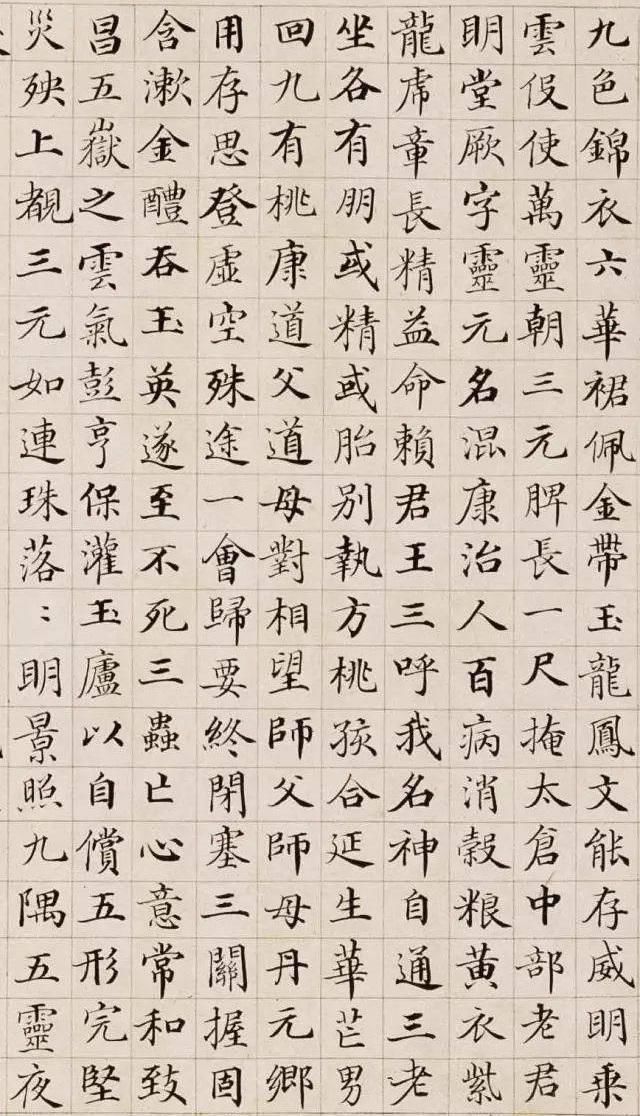 九色錦衣六華裙佩金帶玉龍鳳文能存威明乗
雲伇使萬靈朝三元脾長一尺掩太倉中部老君
明堂厥字靈元名混康治人百病消穀粮黃衣紫
龍虎章長精益命賴君王三呼我名神自通三老
坐各有朋或精或胎別執方桃孩合延生華芒男
回九有桃康道父道母對相望師父師母丹元鄉
用存思登虛空殊途一會歸要終閉塞三關握固
含漱金醴吞玉英遂至不死三蟲亡心意常和致
昌五嶽之雲氣彭亨保灌玉廬以自償五形完堅
災殃上覩三元如連珠落〻明景照九隅五靈夜